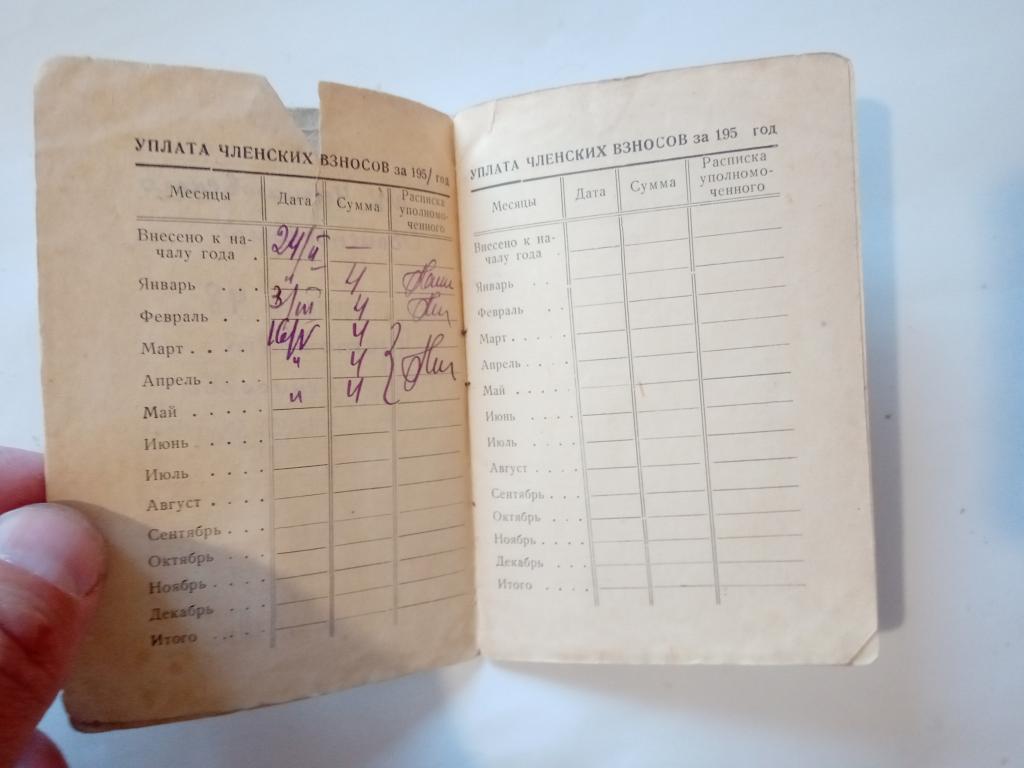 УПЛАТА ЧЛЕНСКИХ ВЗНОСОВ за 1951 год
Месяцы Дата Сумма Расписка уполномо-ченного
Внесено к на-
чалу года . 24/II —
Январь . . . " 4
Февраль . . 3/III 4
Март . . . . 16/V 4
Апрель . . . " 4
Май . . . . " 4
Июнь . . . .
Июль . . . .
Август . . . .
Сентябрь . . .
Октябрь . . .
Ноябрь . . . .
Декабрь . . .
Итого . . . .
УПЛАТА ЧЛЕНСКИХ ВЗНОСОВ за 195 год
Месяцы Дата Сумма Расписка уполномо-ченного
Внесено к на-
чалу года .
Январь . .
Февраль . . .
Март . . . .
Апрель . . .
Май . . . .
Июнь . . . .
Июль . . . .
Август . . . .
Сентябрь . . .
Октябрь . . .
Ноябрь . . . .
Декабрь . . .
Итого . . . .